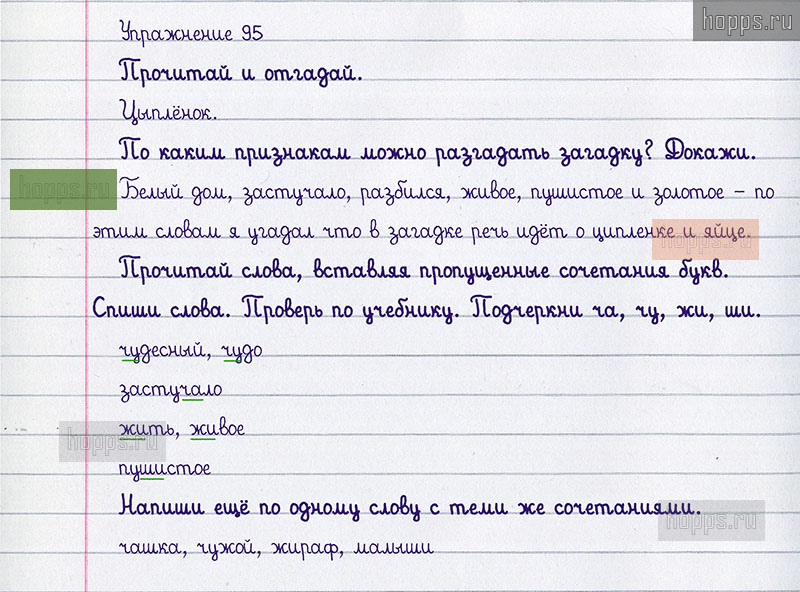 hopps.ru
Упражнение 95
Прочитай и отгадай.
Цыплёнок.
По каким признакам можно разгадать загадку? Докажи.
hopps.ru
Белый дом, застучало, разбился, живое, пушистое и золотое – по
этим словам я угадал что в загадке речь идёт о ципленке и яйце.
hopps.ru
Прочитай слова, вставляя пропущенные сочетания букв.
Спиши слова. Проверь по учебнику. Подчеркни ча, чу, жи, ши.
чудесный, чудо
застучало
жить, живое
hopps.ru
пушистое
Напиши ещё по одному слову с теми же сочетаниями.
hopps.ru
чашка, чужой, жираф, малыши